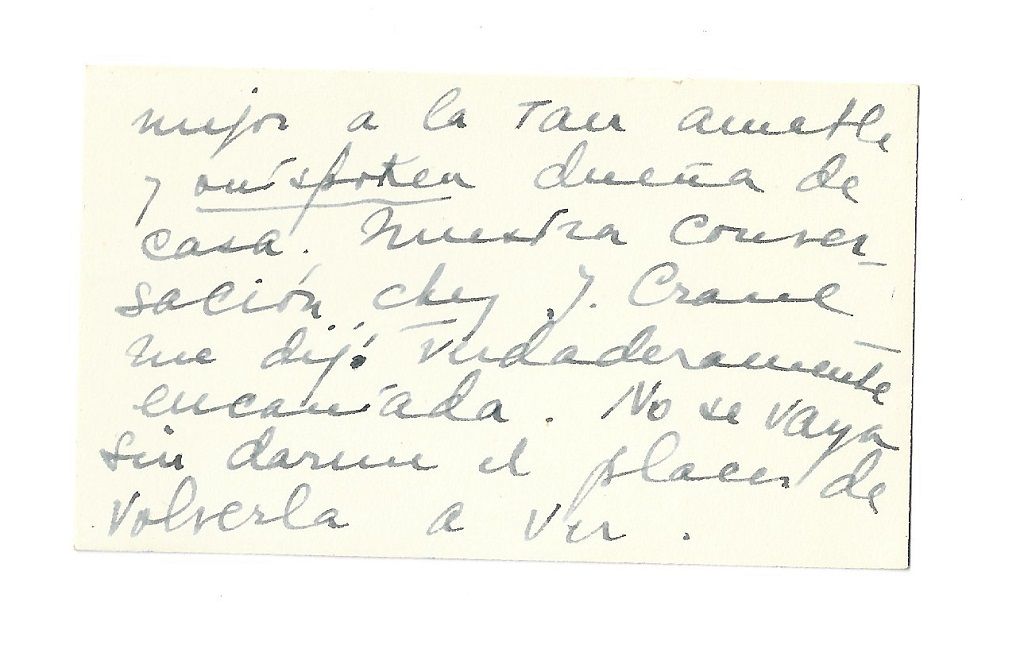 mejor a la tan amable
y outspoken dueña de
casa. Nuestra conver-
sación chez J. Crane
me dejó verdaderamente
encantada. No se vaya
sin darme el placer de
volverla a ver.